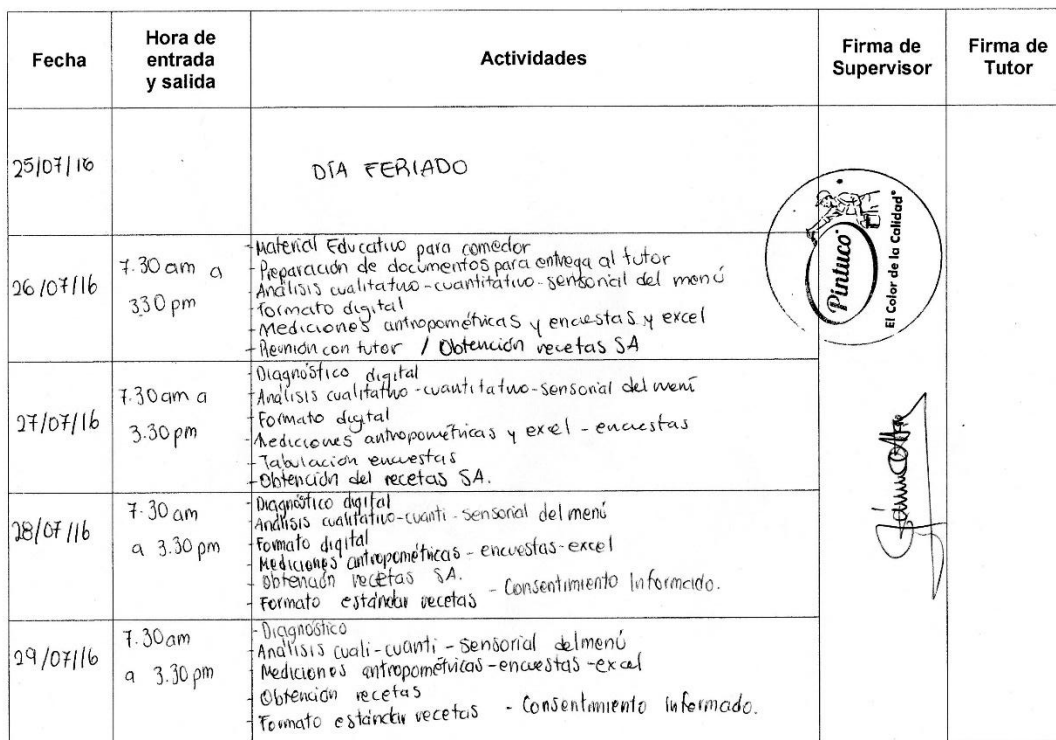 Fecha
Hora de
entrada
y salida
Actividades
Firma de
Supervisor
Firma de
Tutor
25/07/16
DÍA FERIADO
26/07/16
7.30 am a
3.30 pm
- Material Educativo para comedor
- Preparación de documentos para entrega al tutor
- Análisis cualitativo-cuantitativo-sensorial del menú
- Formato digital
- Mediciones antropométricas y encuestas y excel
- Reunión con tutor / Obtención recetas SA
27/07/16
7.30 am a
3.30 pm
- Diagnóstico digital
- Análisis cualitativo-cuantitativo-sensorial del menú
- Formato digital
- Mediciones antropométricas y excel - encuestas
- Tabulación encuestas
- Obtención del recetas SA.
28/07/16
7.30 am
a 3.30 pm
- Diagnóstico digital
- Análisis cualitativo-cuanti-sensorial del menú
- Formato digital
- Mediciones antropométricas-encuestas-excel
- Obtención recetas SA.
- Formato estándar recetas - Consentimiento Informado.
29/07/16
7.30am
a 3.30 pm
- Diagnóstico
- Análisis cuali-cuanti-sensorial del menú
- Mediciones antropométricas-encuestas-excel
- Obtención recetas
- Formato estándar recetas - Consentimiento informado.
Pintuco
El Color de la Calidad®